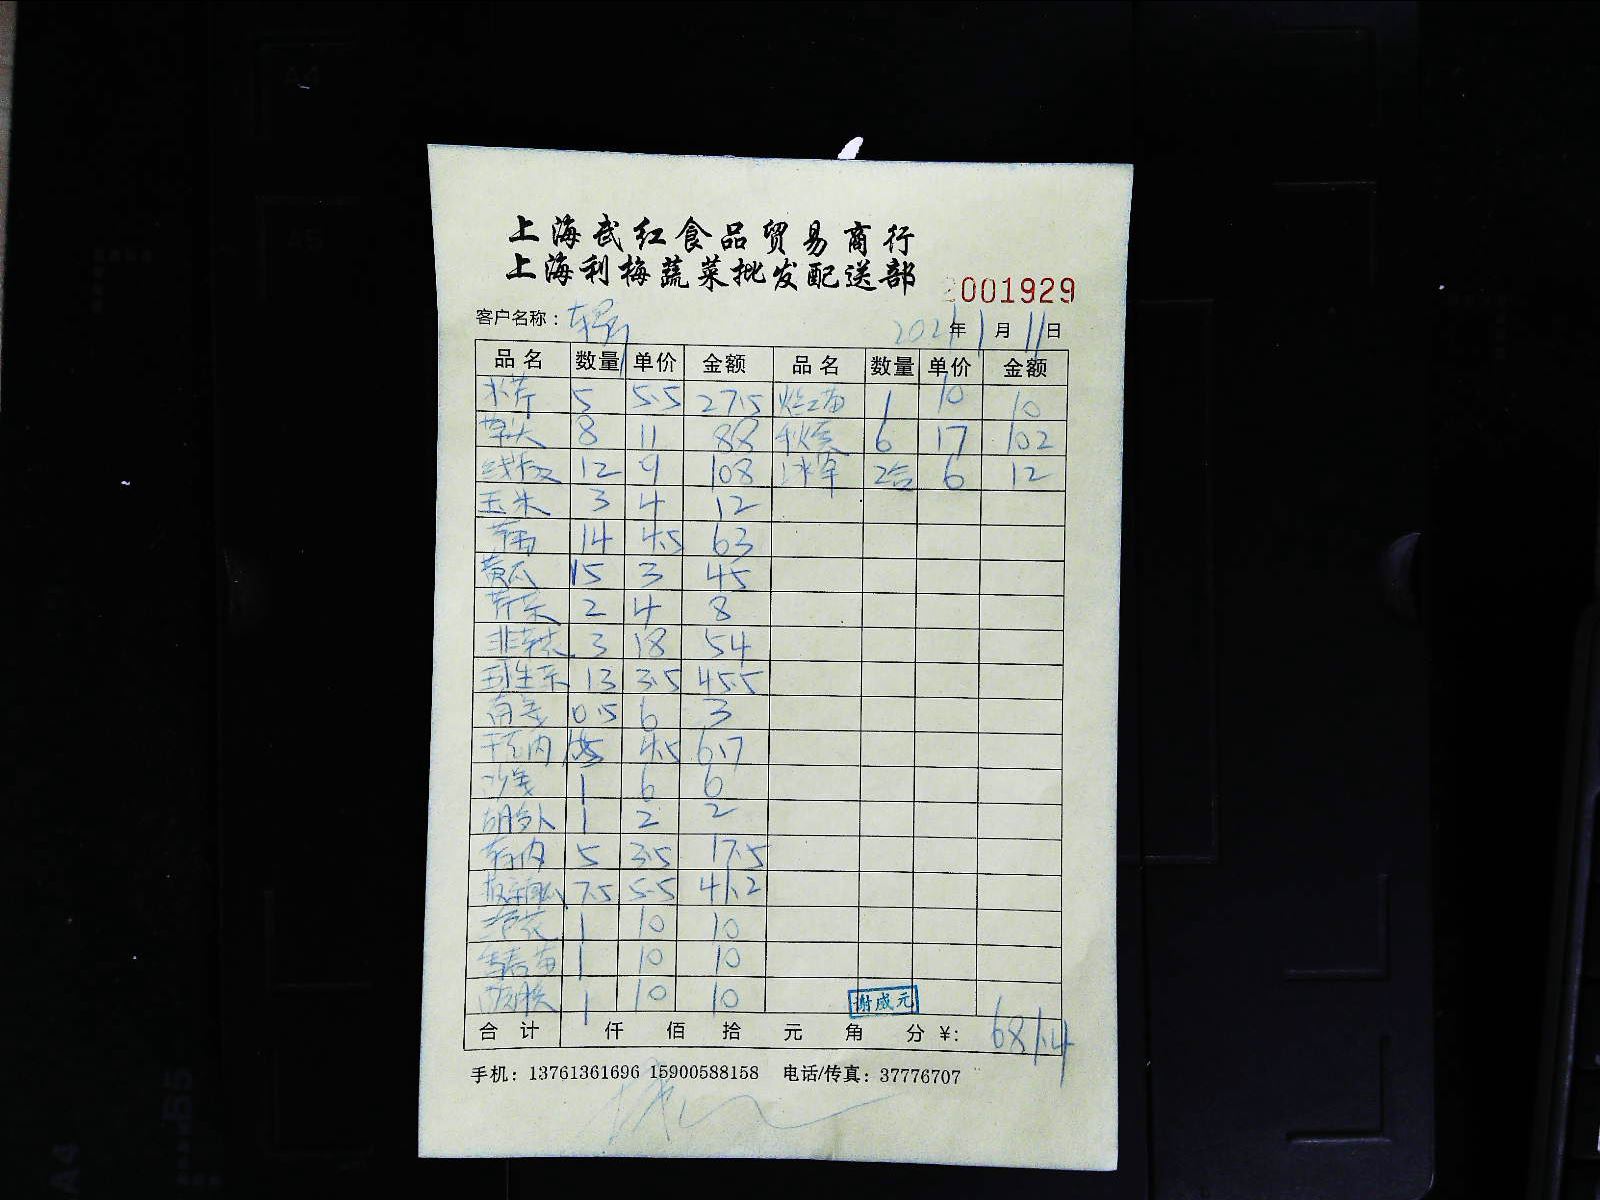 上海武红食品贸易商行
上海利梅蔬菜批发配送部
2001929
客户名称：
2021年1月11日
品名 数量 单价 金额 品名 数量 单价 金额
水芹 5 5.5 27.5 1 10 10
草头 8 11 88 秋葵 6 17 102
线椒 12 9 108 冰草 2合 6 12
玉米 3 4 12
14 4.5 63
黄瓜 15 3 45
芹菜 2 4 8
3 18 54
生菜 13 3.5 45.5
0.5 6 3
4.5 6.7
沙姜 1 6 6
胡萝卜 1 2 2
5 3.5 17.5
板栗南瓜 7.5 5.5 41.2
1 10 10
苗 1 10 10
1 10 10
谢成元
合计 仟 佰 拾 元 角 分 ¥: 681.4
手机：13761361696 15900588158 电话/传真：37776707